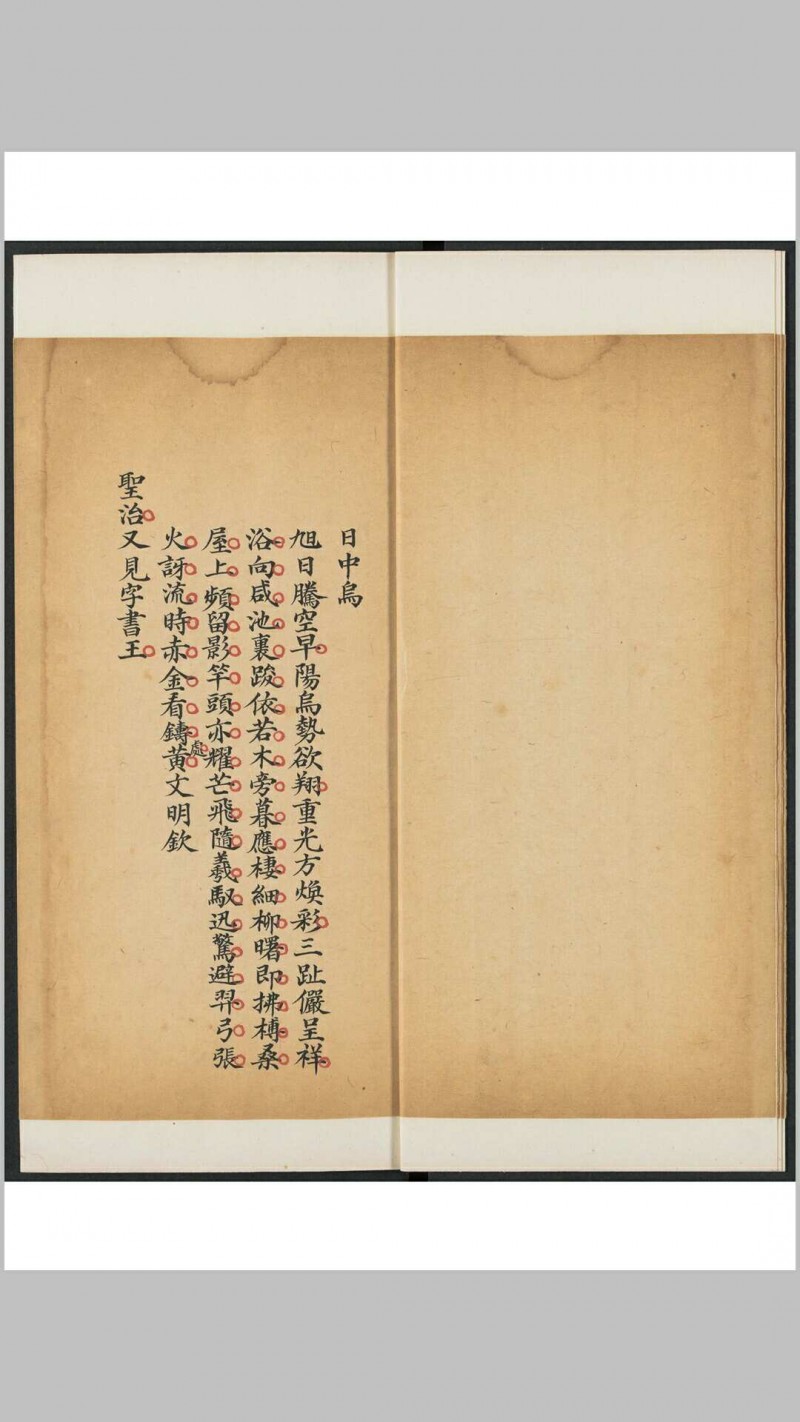 日中烏
旭日騰空早陽烏勢欲翔重光方煥彩三趾儼呈祥
浴向咸池裏踆依若木旁暮應棲細柳曙即拂榑桑
屋上頻留影竿頭亦耀芒飛隨羲馭迅驚避羿弓張
火訝流時赤金看鑄處黃文明欽
聖治又見字書王